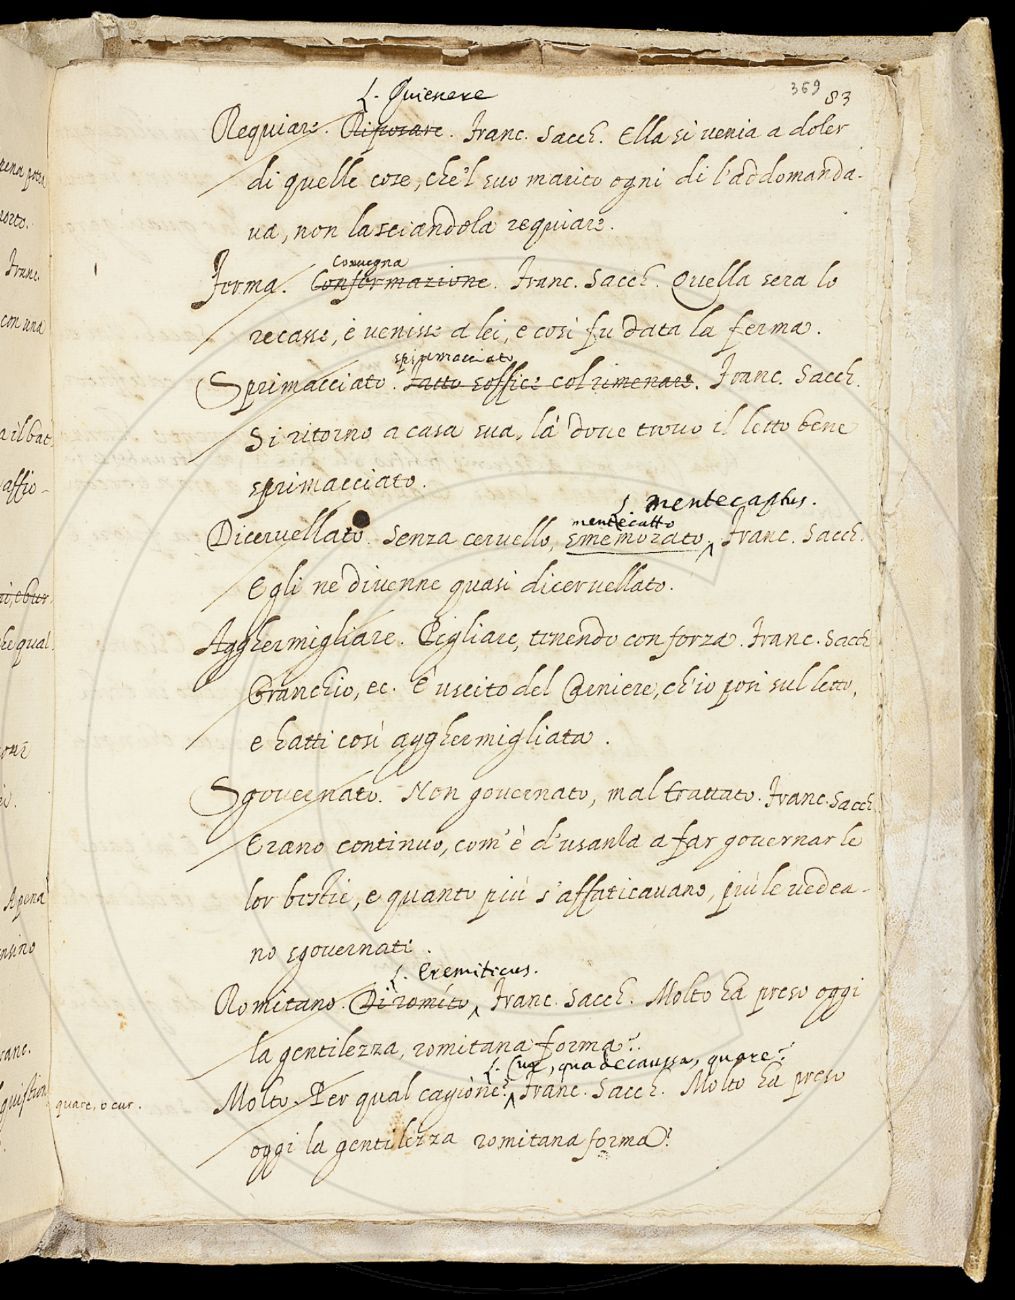 369
83
L. Quiescere
Requiare. Riposare. Franc. Sacch. Ella si venia a doler
di quelle cose, che'l suo marito ogni dì l'addomanda-
va, non lasciandola requiare.
Convegna
Ferma. Confermazione. Franc. Sacch. Quella sera lo
recasse, e venisse a lei, e così fu data la ferma.
spiumacciato
Sprimacciato. Fatto soffice col rimenare. Franc. Sacch.
Si ritorno a casa sua, la dove trovo il letto bene
sprimacciato.
L. mentecaptus.
mentecatto
Dicervellato. Senza cervello, smemorato. Franc. Sacch.
Egli ne divenne quasi dicervellato.
Agghermigliare. Pigliare, tenendo con forza. Franc. Sacch
Granchio, ec. È uscito del Carniere, ch'io posi sul letto,
e hatti così agghermigliata.
Sgovernato. Non governato, mal trattato. Franc. Sacch.
Erano continuo, com'è d'usanza a far governar le
lor bestie, e quanto più s'affaticavano, più le vedea-
no sgovernati.
L. Eremiticus.
Romitano. Di romito, Franc. Sacch. Molto ha preso oggi
la gentilezza, romitana forma?
L. Cur, qua de caussa, quare?
Molto. Per qual cagione? Franc. Sacch. Molto ha preso
quare, o cur.
oggi la gentilezza romitana forma?